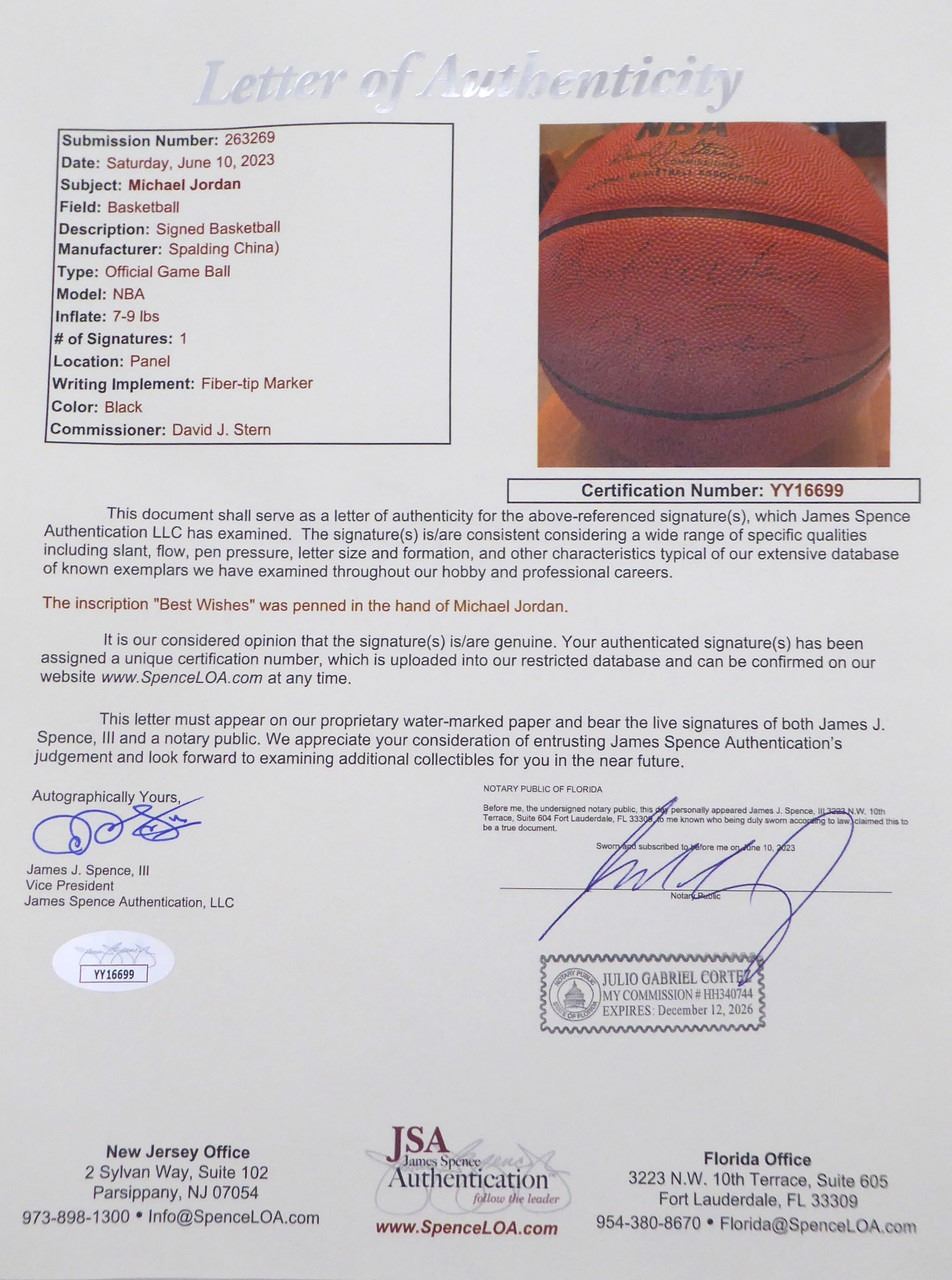 Letter of Authenticity
Submission Number: 263269
Date: Saturday, June 10, 2023
Subject: Michael Jordan
Field: Basketball
Description: Signed Basketball
Manufacturer: Spalding China)
Type: Official Game Ball
Model: NBA
Inflate: 7-9 lbs
# of Signatures: 1
Location: Panel
Writing Implement: Fiber-tip Marker
Color: Black
Commissioner: David J. Stern
NBA
COMMISSIONER
NATIONAL BASKETBALL ASSOCIATION
Certification Number: YY16699
This document shall serve as a letter of authenticity for the above-referenced signature(s), which James Spence
Authentication LLC has examined. The signature(s) is/are consistent considering a wide range of specific qualities
including slant, flow, pen pressure, letter size and formation, and other characteristics typical of our extensive database
of known exemplars we have examined throughout our hobby and professional careers.
The inscription "Best Wishes" was penned in the hand of Michael Jordan.
It is our considered opinion that the signature(s) is/are genuine. Your authenticated signature(s) has been
assigned a unique certification number, which is uploaded into our restricted database and can be confirmed on our
website www.SpenceLOA.com at any time.
This letter must appear on our proprietary water-marked paper and bear the live signatures of both James J.
Spence, III and a notary public. We appreciate your consideration of entrusting James Spence Authentication's
judgement and look forward to examining additional collectibles for you in the near future.
Autographically Yours,
James J. Spence, III
Vice President
James Spence Authentication, LLC
YY16699
NOTARY PUBLIC OF FLORIDA
Before me, the undersigned notary public, this day personally appeared James J. Spence, III 3223 N.W. 10th
Terrace, Suite 604 Fort Lauderdale, FL 33309, to me known who being duly sworn according to law, claimed this to
be a true document.
Sworn and subscribed to before me on June 10, 2023
Notary Public
NOTARY PUBLIC
STATE OF FLORIDA
JULIO GABRIEL CORTEZ
MY COMMISSION # HH340744
EXPIRES: December 12, 2026
New Jersey Office
2 Sylvan Way, Suite 102
Parsippany, NJ 07054
973-898-1300 • Info@SpenceLOA.com
JSA
James Spence
Authentication
follow the leader
www.SpenceLOA.com
Florida Office
3223 N.W. 10th Terrace, Suite 605
Fort Lauderdale, FL 33309
954-380-8670 • Florida@SpenceLOA.com